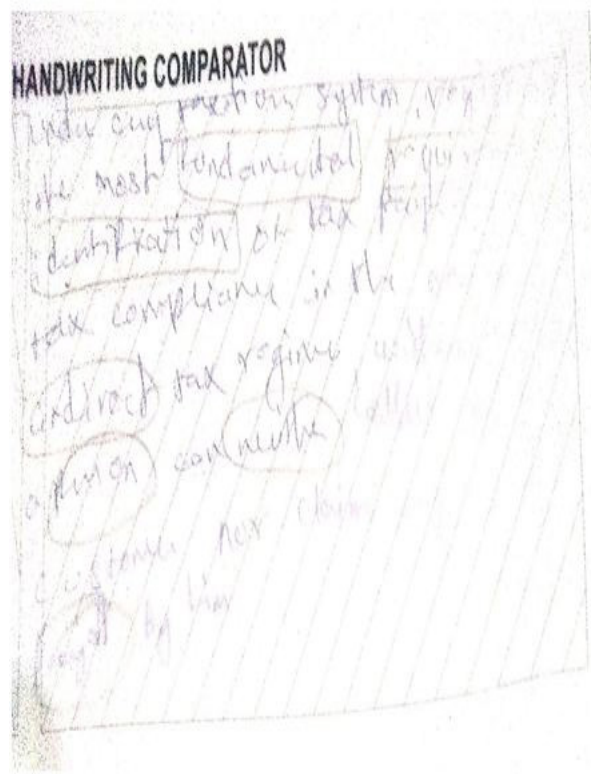 HANDWRITING COMPARATOR
Under any taxation system,
the most fundamental
identification of tax
tax compliance in the
indirect tax regime
a person can neithe
customer nor claim
by him